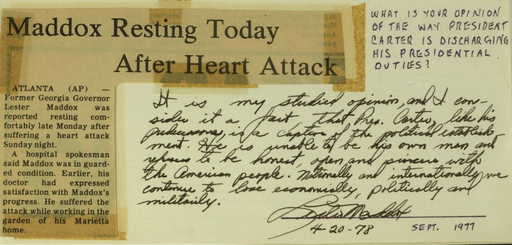 Maddox Resting Today
After Heart Attack
ATLANTA (AP) —
Former Georgia Governor
Lester Maddox was
reported resting com-
fortably late Monday after
suffering a heart attack
Sunday night.
A hospital spokesman
said Maddox was in guard-
ed condition. Earlier, his
doctor had expressed
satisfaction with Maddox's
progress. He suffered the
attack while working in the
garden of his Marietta
home.
WHAT IS YOUR OPINION
OF THE WAY PRESIDENT
CARTER IS DISCHARGING
HIS PRESIDENTIAL
DUTIES?
It is my studied opinion, and I con-
sider it a fact that Pres. Carter, like his
predecessors, is a captive of the political establish-
ment. He is unable to be his own man and
refuses to be honest, open and sincere with
the American people. Nationally and internationally, we
continue to lose economically, politically and
militarily.
Lester Maddox
4-20-78
SEPT. 1977